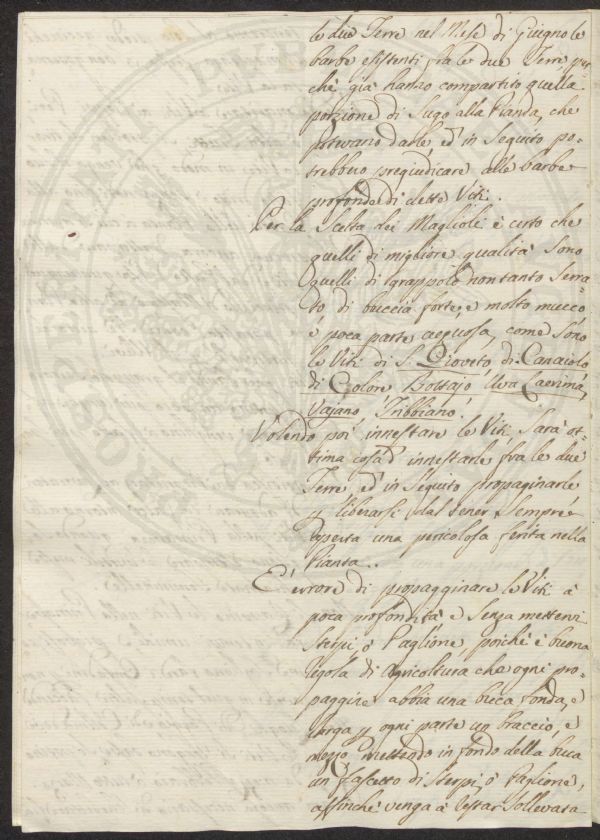 le due Terre nel Mese di Giugno le
barbe esistenti fra le due Terre per-
chè già hanno compartito quella
porzione di Sugo alla Pianta, che
potevano darle, ed' in Seguito po-
trebbero pregiudicare alle barbe
profonde di dette Viti.
Per la Scelta dei Maglioli è certo che
quelli di migliore qualità Sono
quelli di grappolo non tanto Serra-
to di buccia forte, e molto mucco
e poca parte acquosa, come Sono
le Viti di S. Gioveto di Canaiolo
di Colore Bottajo Uva Lacrima,
Vajano Tribbiano.
Volendo poi innestare le Viti, Sarà ot-
tima cosa d' innestarle fra le due
Terre, ed' in Seguito propaginarle
p liberarsi dal tener Sempre
aperta una pericolosa ferita nella
Pianta..
E' errore di propagginare le Viti à
poca profondità e Senza mettervi
Sterpi, ò Paglione, poichè è buona
regola di Agricoltura che ogni pro-
paggine abbia una buca fonda, e
larga p ogni parte un braccio, e
mezzo mettendo in fondo della buca
un fascetto di Sterpi, ò Paglione,
affinchè venga à restar Sollevata